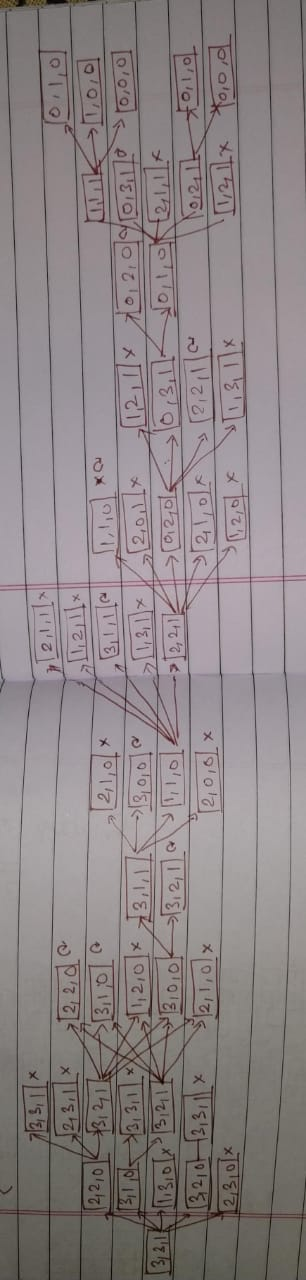 3,3,1
2,2,0
3,1,0
1,3,0 x
3,2,0
2,3,0 x
3,3,1 x
2,3,1 x
3,2,1
3,3,1 x
3,2,1
3,3,1 x
2,2,0
3,1,0
1,2,0 x
3,0,0
2,1,0 x
3,1,1
3,2,1
2,1,0 x
3,0,0
1,1,0
2,0,0 x
2,1,1 x
1,2,1 x
3,1,1
1,3,1 x
2,2,1
1,1,0 x
2,0,1 x
0,2,0
2,1,0 x
1,2,0 x
1,2,1 x
0,3,1
2,2,1
1,3,1 x
0,2,0
0,1,0
1,1,1
0,3,1
2,1,1 x
0,2,1
1,2,1 x
0,1,0
1,0,0
0,0,0
0,1,0
0,0,0